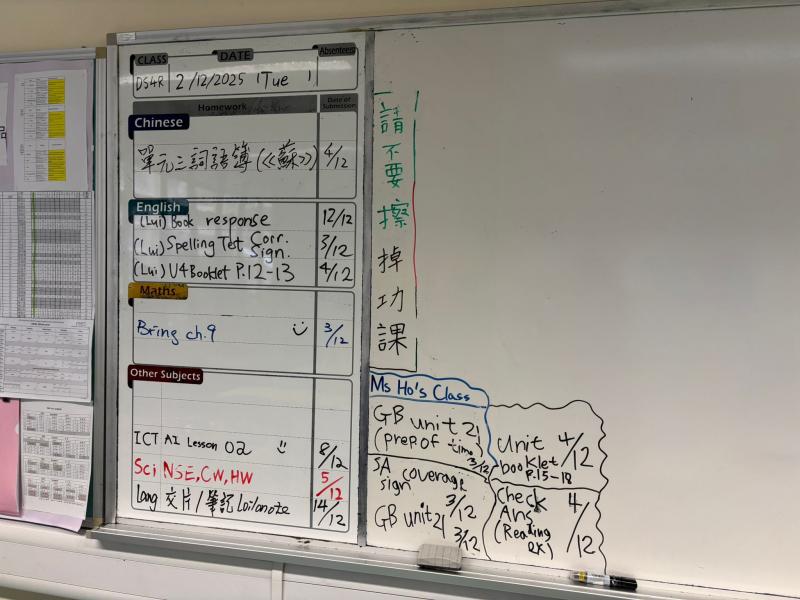 CLASS DATE Absentees
DS4R 2/12/2025 (Tue)
Homework Date of Submission
Chinese
單元三詞語簿(《蘇》) 4/12
English
(Lui) Book response 12/12
(Lui) Spelling Test Corr. Sign. 3/12
(Lui) U4 Booklet P.12-13 4/12
Maths
Bring ch.9 3/12
Other Subjects
ICT AI Lesson 02 8/12
Sci NSE, CW, HW 5/12
Lang 交片/筆記 14/12
請不要擦掉功課
Ms Ho's Class
GB unit 21
(prep. of time) 3/12
SA coverage
sign 3/12
GB unit 21
3/12
Unit 4/12
booklet
P.15-18
Check 4/12
Ans
(Reading